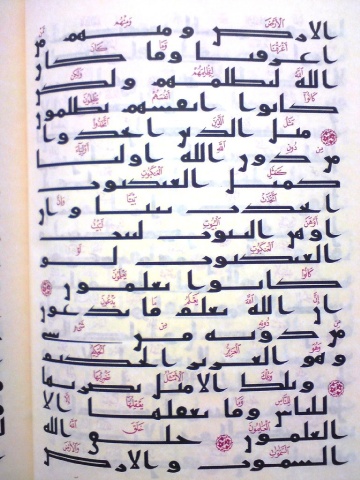 الارض ومنهم من
اغرقنا وما كان
الله ليظلمهم ولكن
كانوا انفسهم يظلمون
مثل الذين اتخذوا
من دون الله اوليا
كمثل العنكبوت
اتخذت بيتا وان
اوهن البيوت لبيت
العنكبوت لو
كانوا يعلمون
ان الله يعلم ما يدعون
من دونه من شي
وهو العزيز الحكيم
وتلك الامثل نضربها
للناس وما يعقلها الا
العلمون خلق الله
السموت والارض